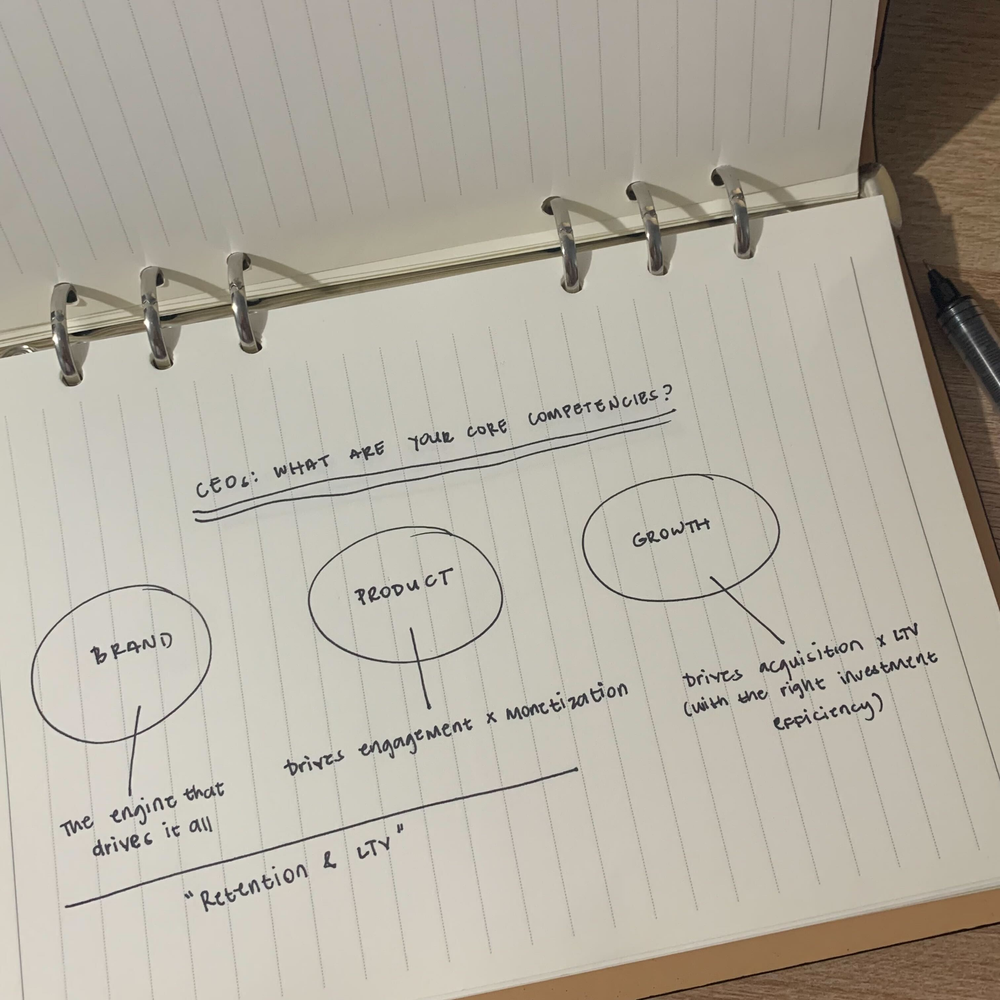 CEOs: WHAT ARE YOUR CORE COMPETENCIES?
BRAND
The engine that
drives it all
PRODUCT
Drives engagement x Monetization
GROWTH
Drives acquisition x LTV
(with the right investment
efficiency)
"Retention & LTV"